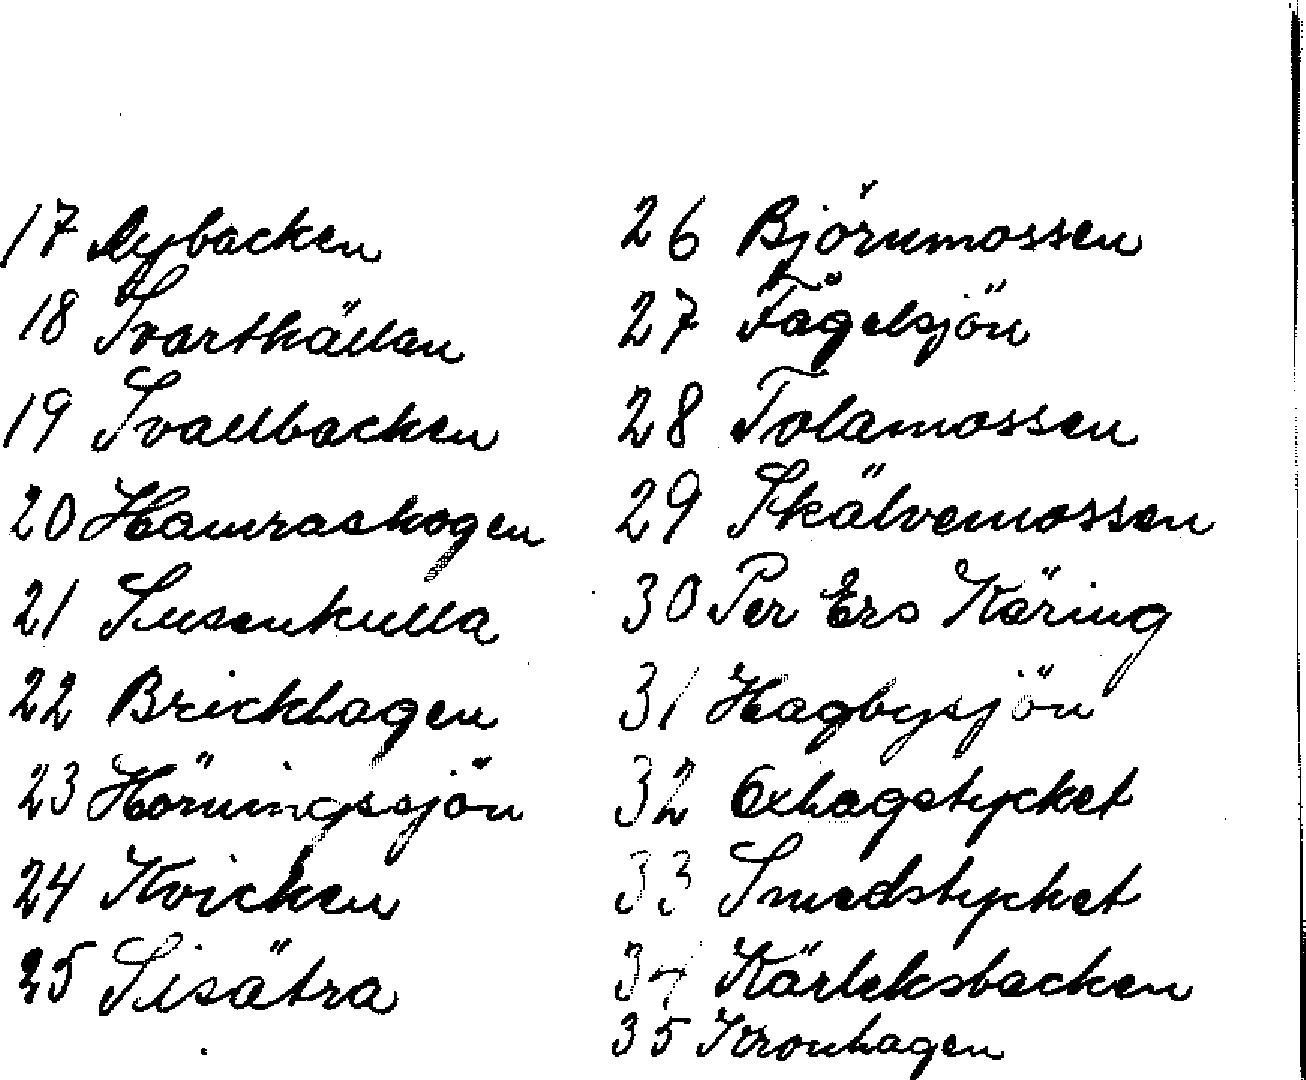 17 Nybacken
18 Svartkällan
19 Svallbacken
20 Hamraskogen
21 Susenkulla
22 Brickhagen
23 Hörningssjön
24 Kvicken
25 Sisätra
26 Björnmossen
27 Fågelsjön
28 Tolamossen
29 Skälvemossen
30 Per Ers Käring
31 Hagbysjön
32 Oxhagstycket
33 Smedstycket
34 Kärleksbacken
35 Kronhagen